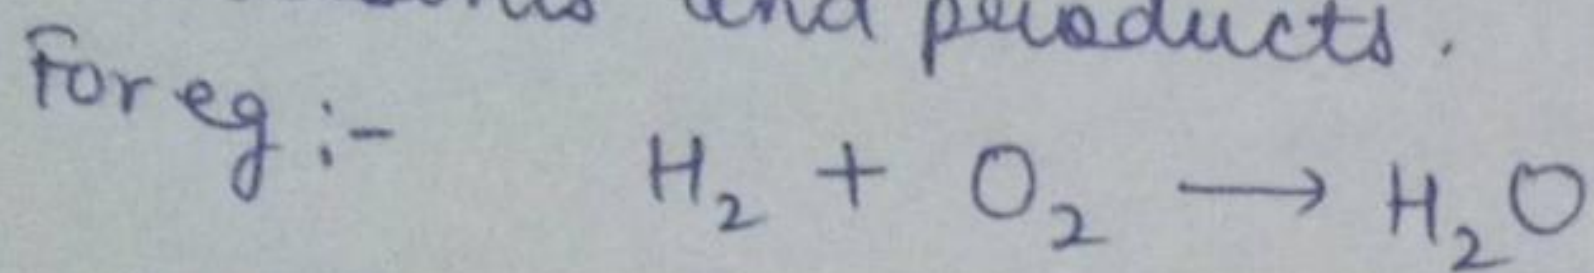 and products.
For eg :-
H₂ + O₂ → H₂O